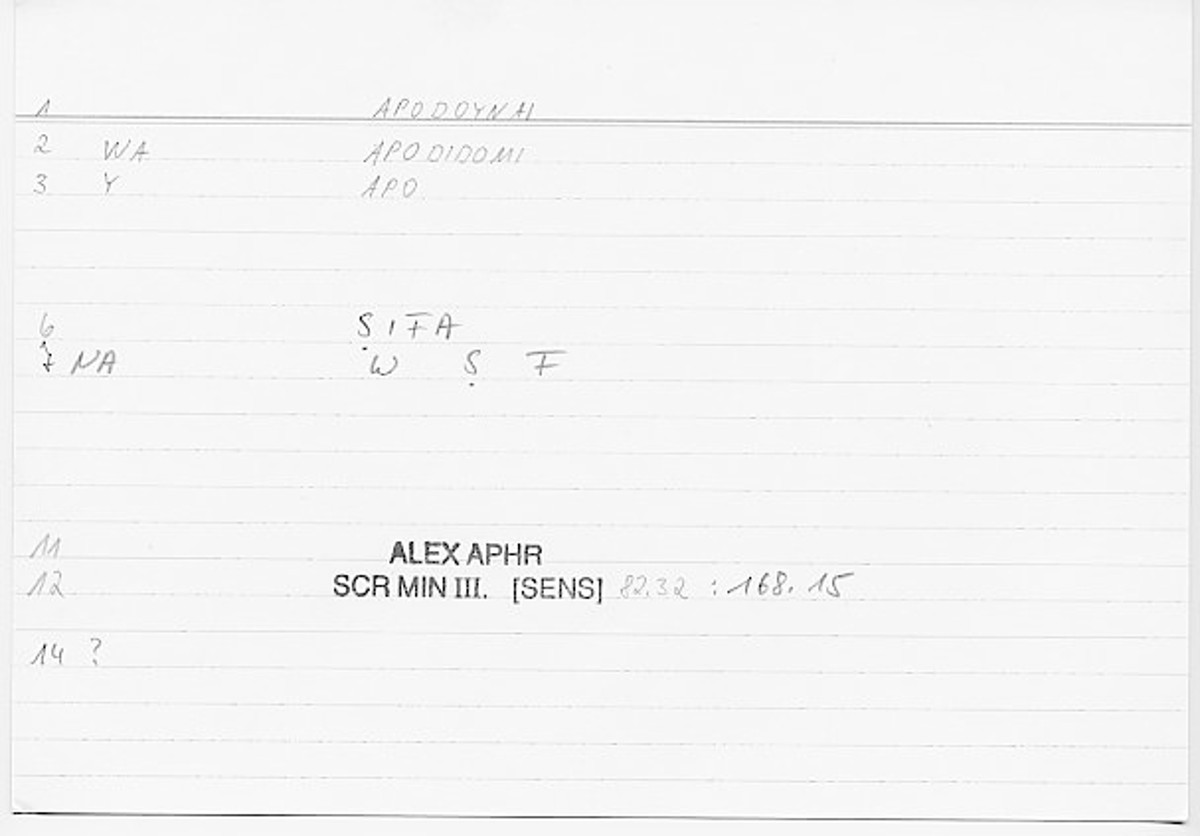 1 APODOYNAI
2 WA APODIDOMI
3 Y APO.
6 ṢIFA
7 NA W Ṣ F
11 ALEX APHR
12 SCR MIN III. [SENS] 82.32 : 168.15
14 ?